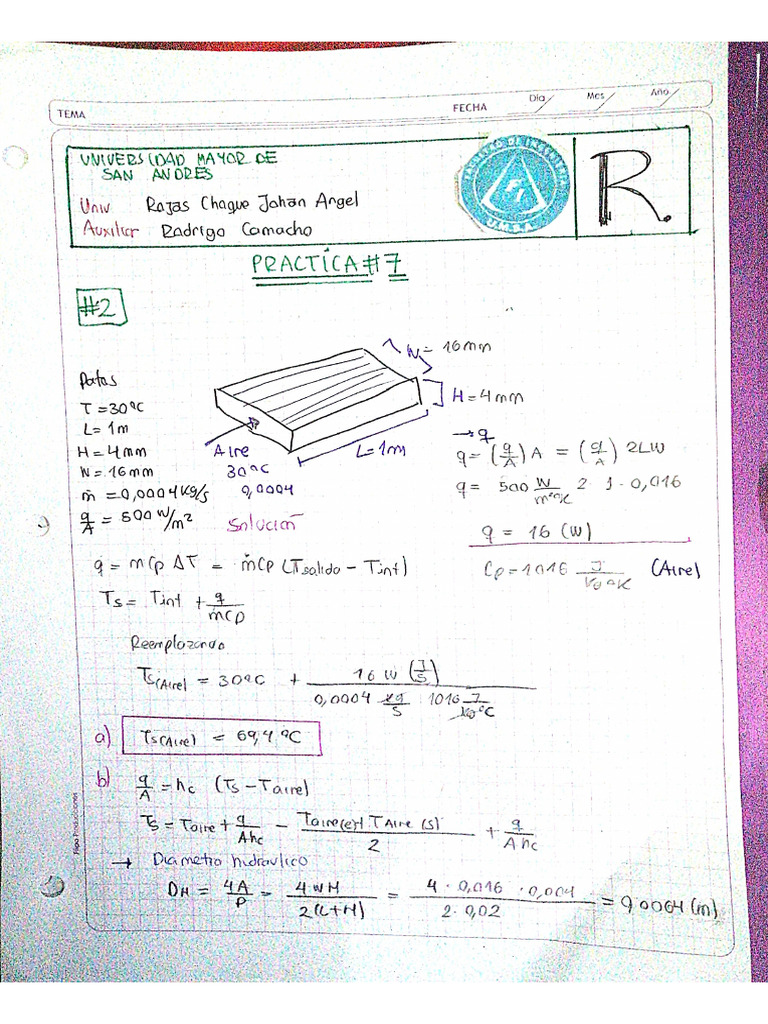 TEMA
FECHA
Dia
Mes
Año
UNIVERSIDAD MAYOR DE
SAN ANDRES
Univ Rojas Chaque Johan Angel
Auxiliar Rodrigo Camacho
R.
PRACTICA #7
#2
W = 16mm
H = 4mm
L = 1m
Aire
30°C
0,0004
Datos
T = 30°C
L = 1m
H = 4mm
W = 16mm
ṁ = 0,0004 kg/s
q/A = 500 W/m²
Solución
→ q
q = (q/A) A = (q/A) 2LW
q = 500 W/m²°K 2 · 1 · 0,016
q = 16 (W)
Cp = 1016 J/Kg°K (Aire)
q = mCp ΔT = ṁCp (Tsalida - Tint)
Ts = Tint + q/ṁCp
Reemplazando
Ts(Aire) = 30°C + 16 W (J/s) / 0,0004 kg/s · 1016 J/kg°C
a) Ts(Aire) = 69,4 °C
b) q/A = hc (Ts - Taire)
Ts = Taire + q/Ahc - Taire(e)+ TAire (s)/2 + q/Ahc
→ Diametro hidraulico
DH = 4A/P = 4WH/2(L+H) = 4 · 0,016 · 0,004/2 · 0,02 = 0,0064 (m)
Fopo Producciones